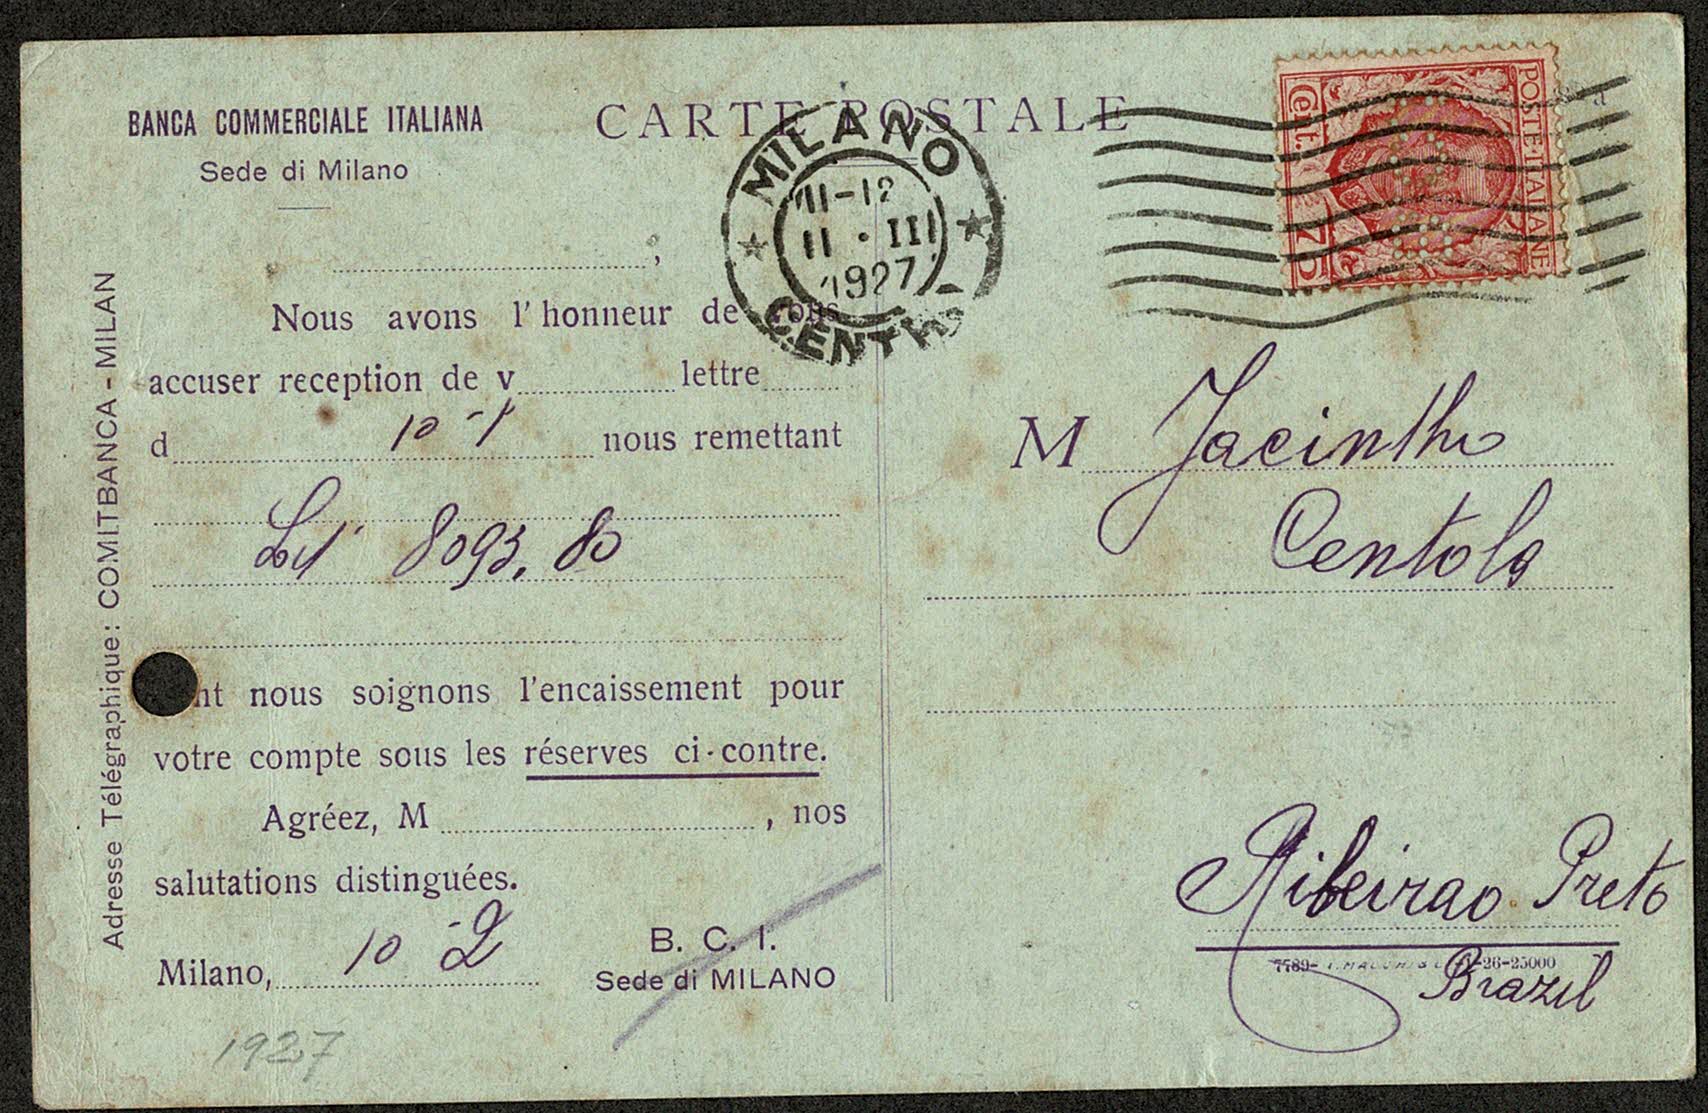 BANCA COMMERCIALE ITALIANA
Sede di Milano
CARTE POSTALE
MILANO
11-12
11 • III
1927
CENTRO
Cent. 75
POSTE·ITALIANE
Adresse Télégraphique: COMITBANCA - MILAN
,
Nous avons l'honneur de vous
accuser reception de v lettre
d 10-1 nous remettant
Lit 8093,80
nt nous soignons l'encaissement pour
votre compte sous les réserves ci-contre.
Agréez, M , nos
salutations distinguées.
Milano, 10-2
B. C. I.
Sede di MILANO
1927
M Jacintho
Centola
Ribeirao Preto
7789- -26-25000
Brazil